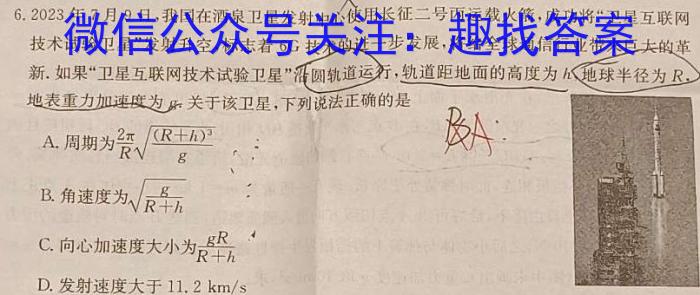 6. 2023年7月9日,我国在酒泉卫星发射中心使用长征二号丙运载火箭,成功将“卫星互联网
微信公众号关注：趣找答案
技术试验卫星”发射升空,标志着6G技术的进一步发展,将给全球通信行业带来巨大的革
新.如果“卫星互联网技术试验卫星”沿圆轨道运行,轨道距地面的高度为h,地球半径为R,
地表重力加速度为g.关于该卫星,下列说法正确的是
A. 周期为2π/R√((R+h)³/g)
BA
B. 角速度为√(g/(R+h))
C. 向心加速度大小为gR/(R+h)
D. 发射速度大于11.2 km/s